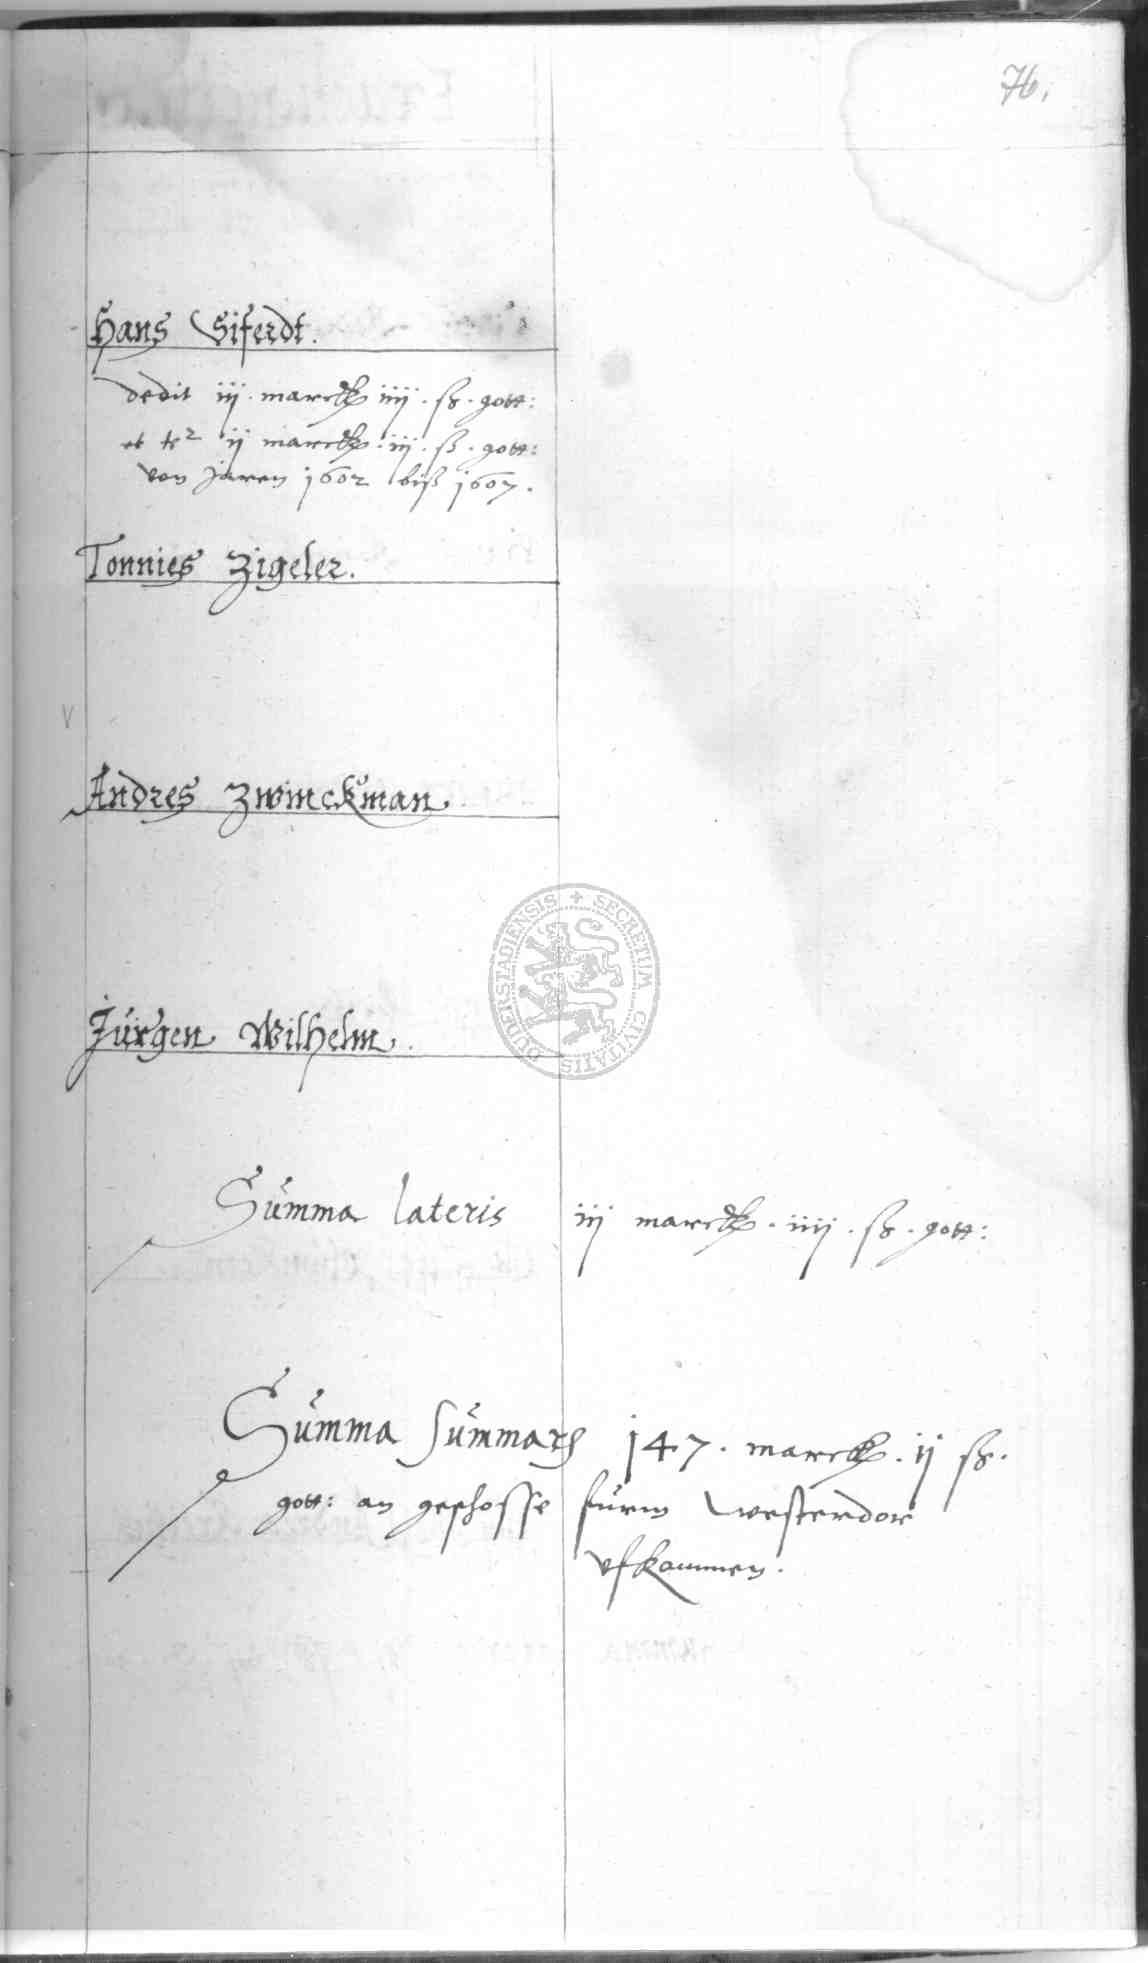 76.
Hans Siferdt.
dedit iij. marck iiij. ß. gott:
et tr² ij marck. iij. ß. gott:
von jaren 1602 biß 1607.
Tonnies Zigeler.
V
Andres Zwinckman.
Jürgen Wilhelm.
DUDERSTADIENSIS SECRETUM CIVITATIS
Summa lateris iij marck. iiij. ß. gott:
Summa summarum 147. marck. ij ß.
gott: an geschosse fürm Westerdor
vfkommen.